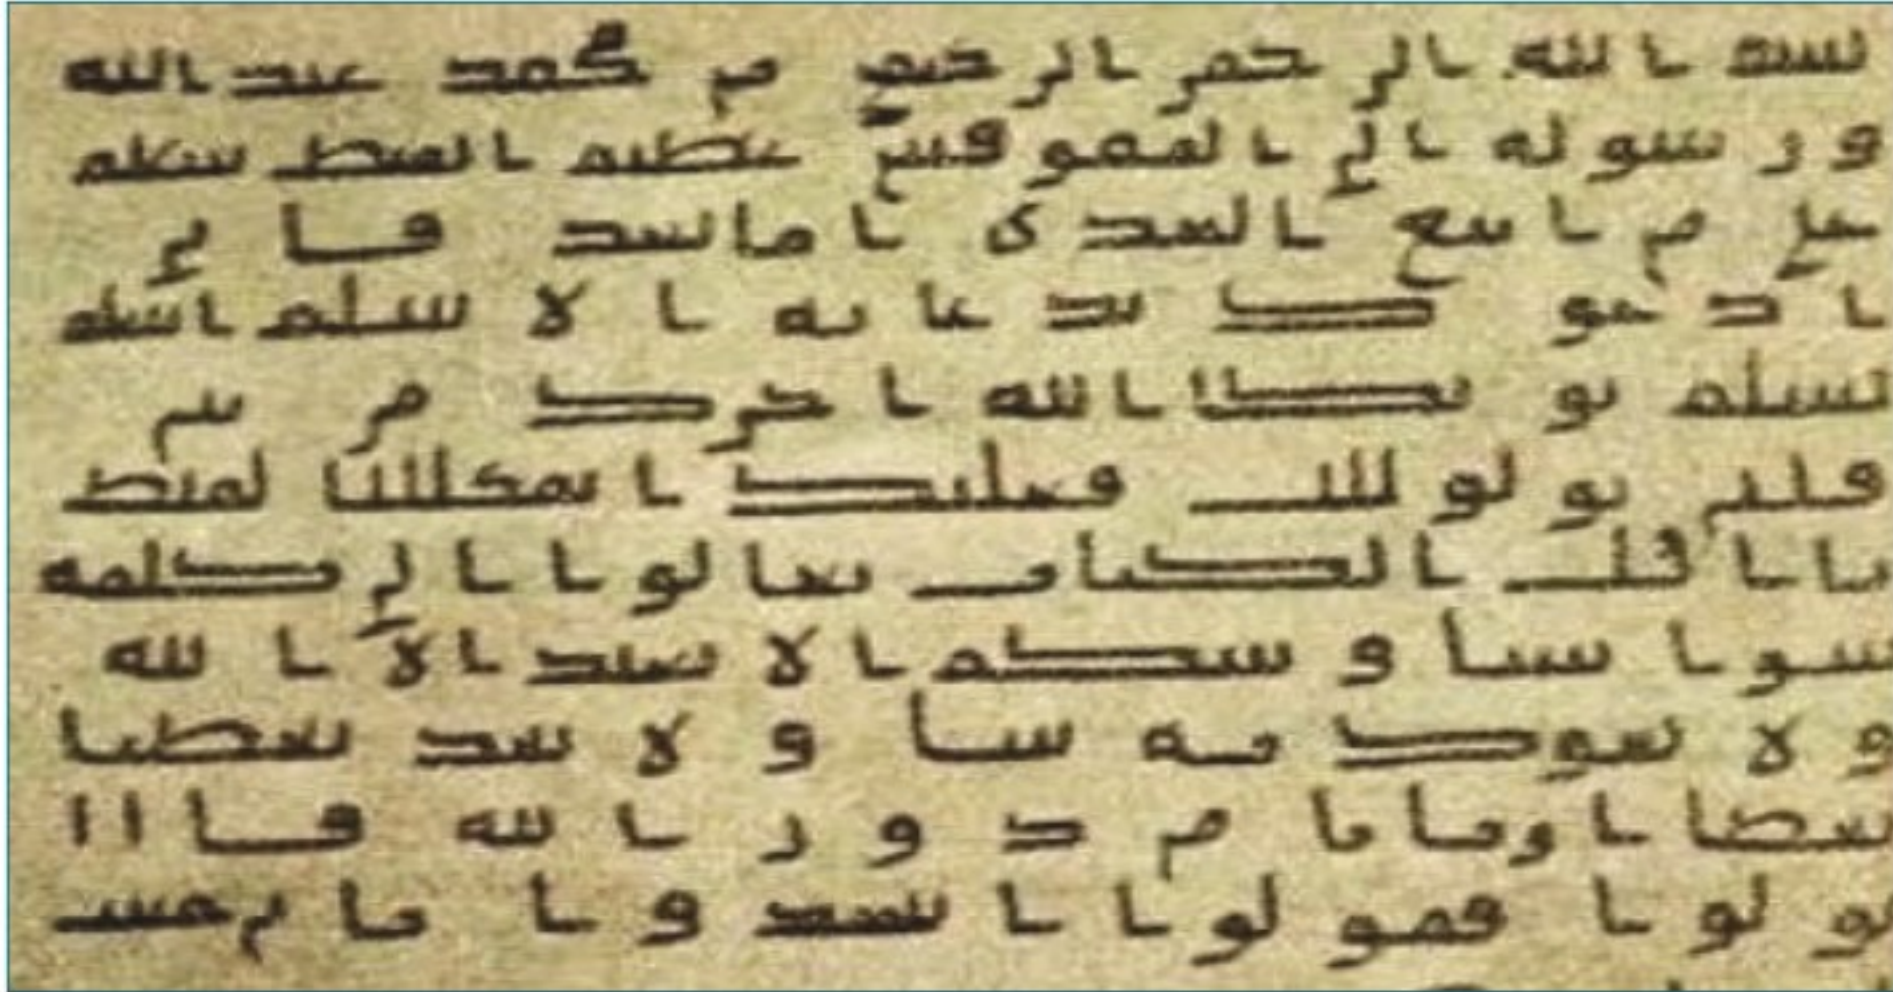 بسم الله الرحمن الرحيم من محمد عبد الله
ورسوله إلى المقوقس عظيم القبط سلم
على من اتبع الهدى أما بعد فإني
أدعوك بدعاية الإسلم أسلم
تسلم يؤتك الله أجرك مرتين
فإن توليت فعليك إثم القبط
يا أهل الكتاب تعالوا إلى كلمة
سواء بيننا وبينكم ألا نعبد إلا الله
ولا نشرك به شيئا ولا يتخذ بعضنا
بعضا أربابا من دون الله فإن
تولوا فقولوا اشهدوا بأنا مسلمون